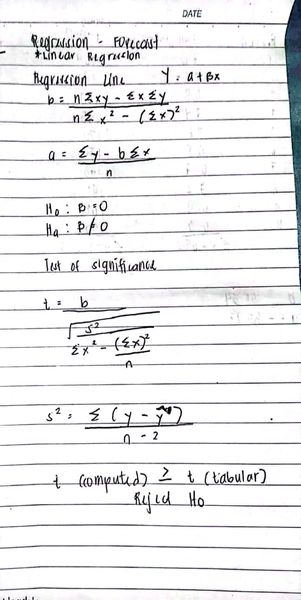 DATE
Regression - Forecast
*Linear Regression
Regression Line Y = a + Bx
b = nΣxy - ΣxΣy
nΣx² - (Σx)²
a = Σy - bΣx
n
Ho : B = 0
Ha : B ≠ 0
Test of significance
t = b
√ s²
Σx² - (Σx)²
n
s² = Σ (y - ŷ)
n - 2
t (computed) ≥ t (tabular)
Reject Ho